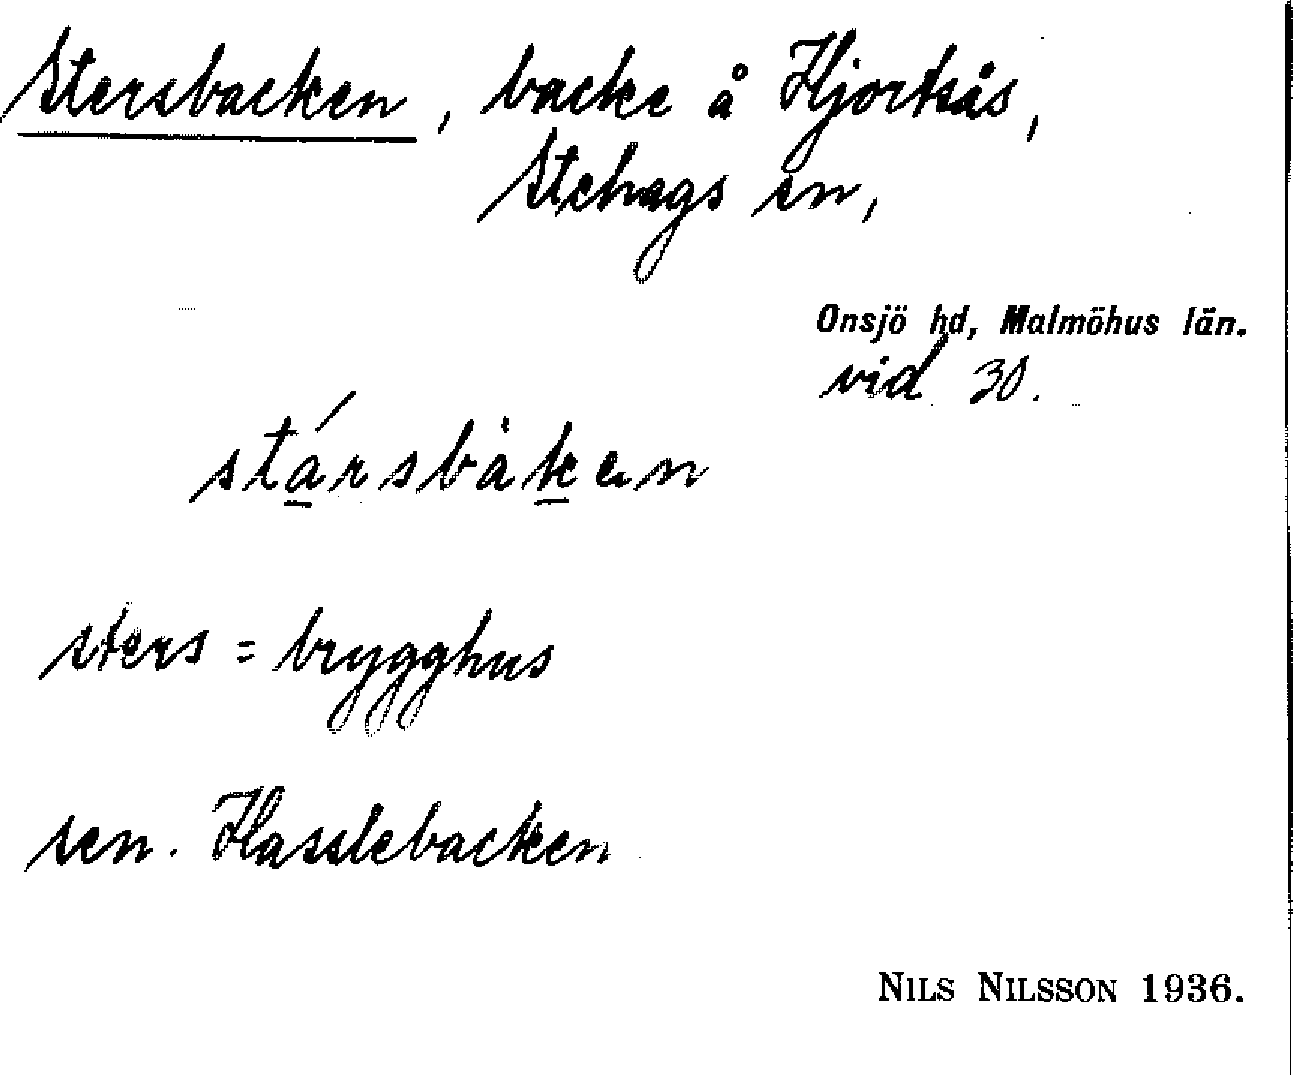 Stersbacken, backe å Hjortsås,
Stehags sn,
Onsjö hd, Malmöhus län.
vid 30.
stársbàken
sters = brygghus
sen. Hasslebacken
NILS NILSSON 1936.